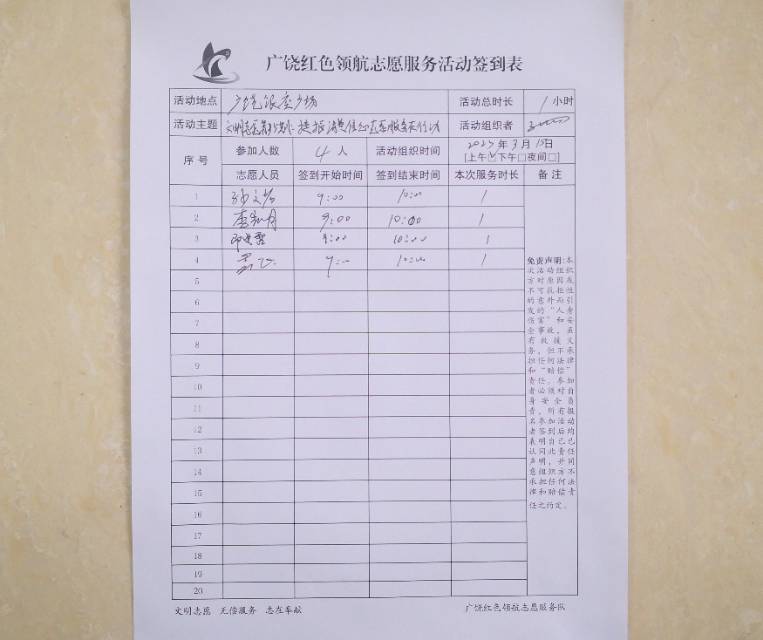 广饶红色领航志愿服务活动签到表
活动地点 广饶银座广场 活动总时长 1小时
活动主题 提振消费 志愿服务在行动 活动组织者
序号 参加人数 4人 活动组织时间 2025年3月15日
[上午☑下午□夜间□]
志愿人员 签到开始时间 签到结束时间 本次服务时长 备注
1 9:00 10:00 1
2 9:00 10:00 1
3 9:00 10:00 1
4 9:00 10:00 1
5
6
7
8
9
10
11
12
13
14
15
16
17
18
19
20
免责声明:本
次活动组织
方对原因及
不可抗拒性
的意外而引
发的“人身
伤害”和安
全事故,虽
有救援义
务,但不承
担任何法律
和“赔偿”
责任,参加
者必须对自
身安全负
责,所有报
名参加活动
者签到后均
表明自己已
认同此责任
声明,并同
意组织方不
承担任何法
律和赔偿责
任之约定。
文明志愿 无偿服务 志在奉献 广饶红色领航志愿服务队